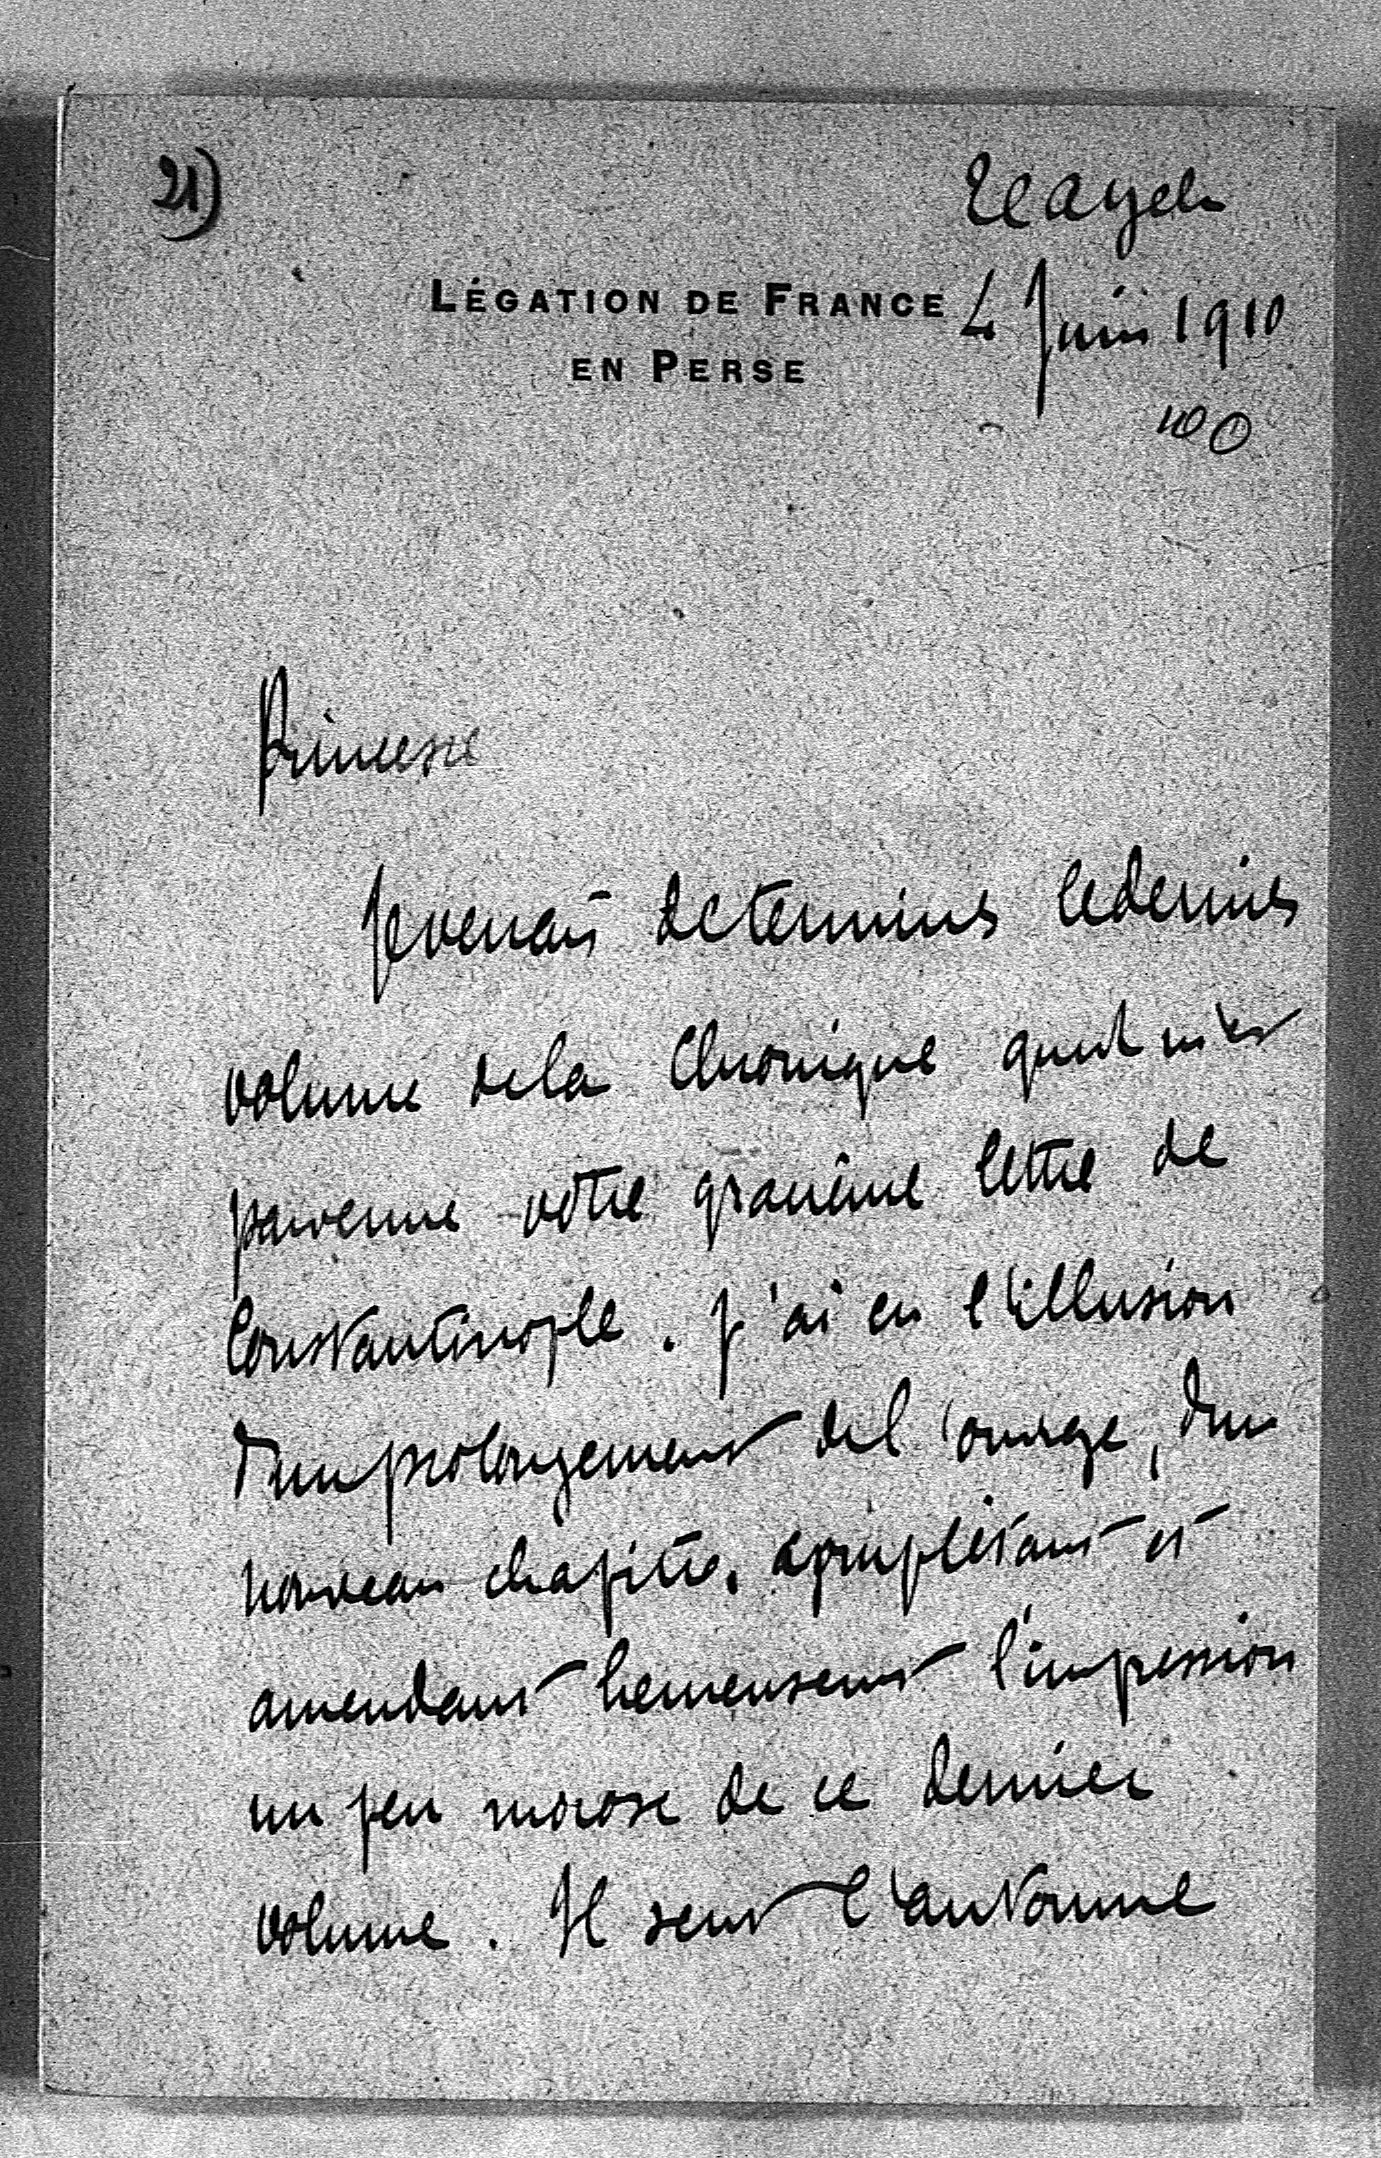 21)
4 Juin 1910
LÉGATION DE FRANCE
EN PERSE
Princesse
Je venais de terminer le dernier
volume de la Chronique quand m'est
parvenue votre lettre de
Constantinople. J'ai eu l'illusion
d'un prolongement de l'ouvrage, d'un
nouveau chapitre, complétant et
amendant heureusement l'impression
un peu morose de ce dernier
volume. Il sent l'automne